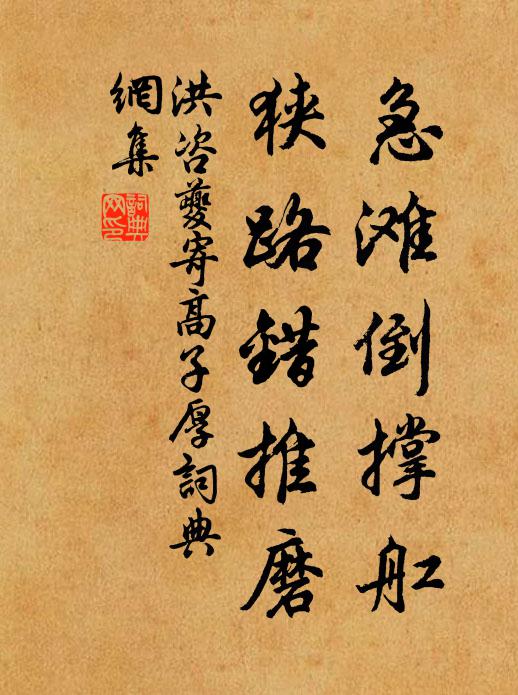 急滩倒撑舡
狭路错推磨
洪咨夔寄高子厚詞典
網集
詞典
网印